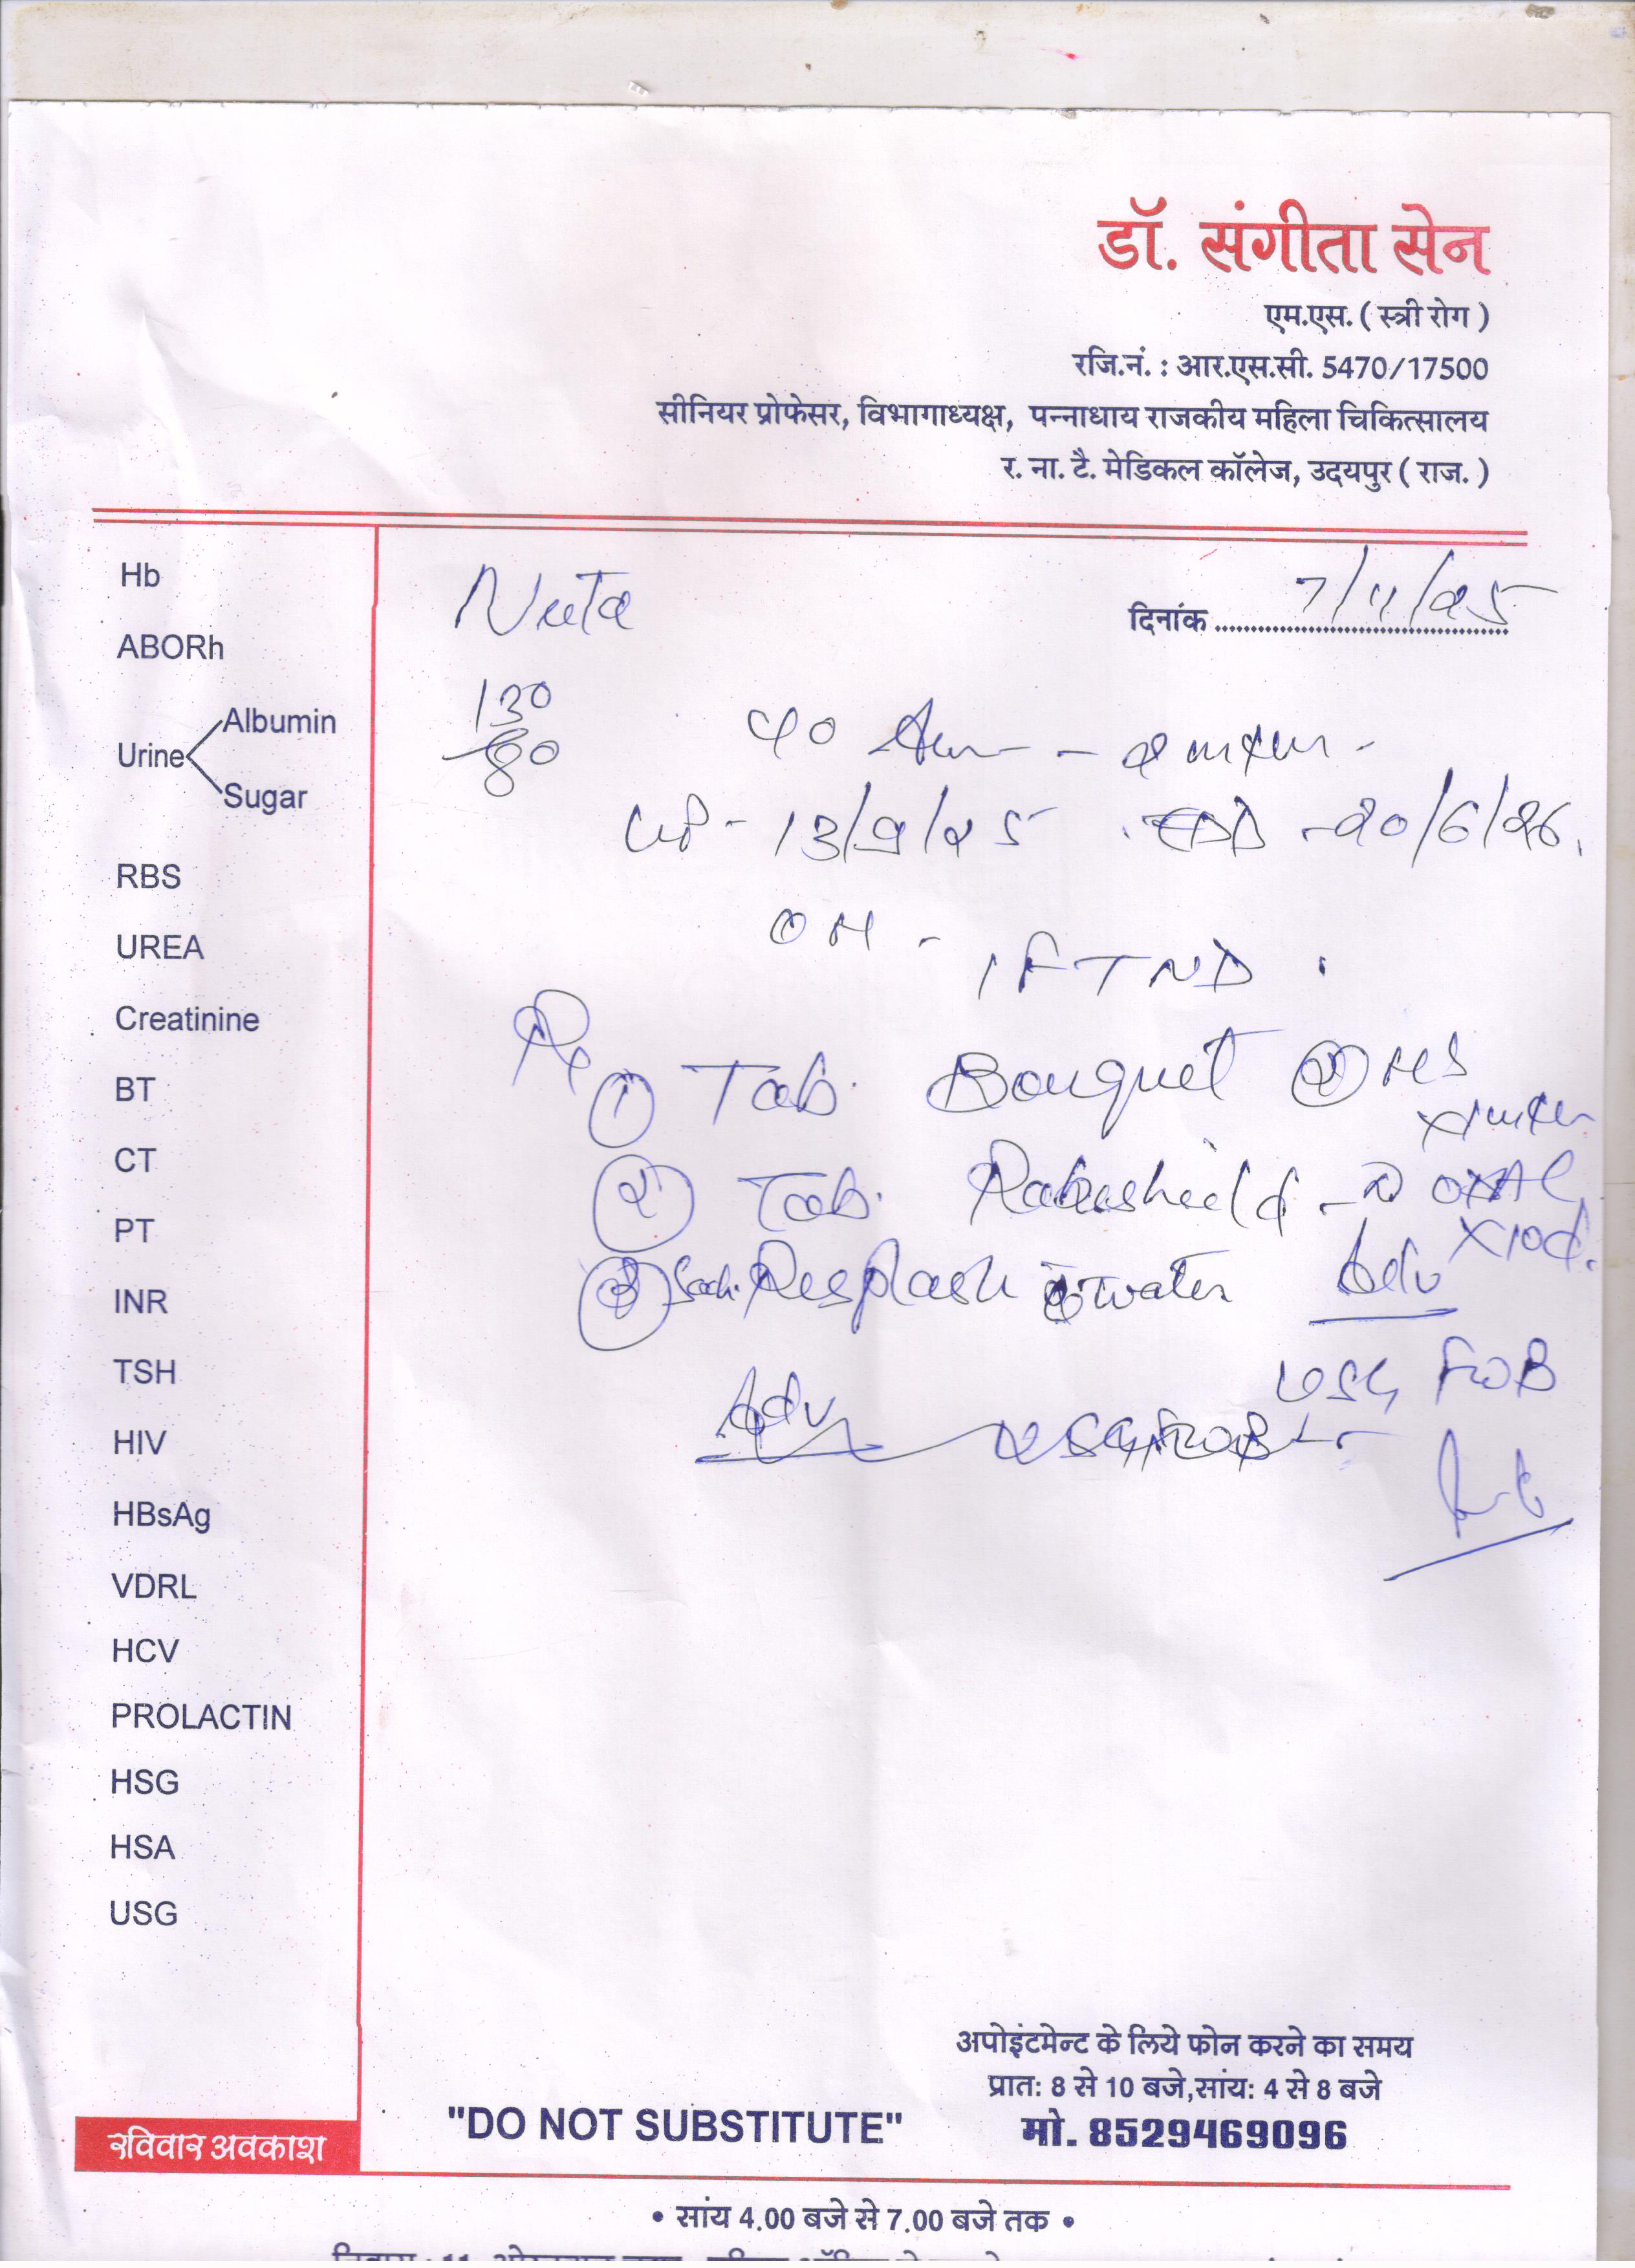 डॉ. संगीता सेन
एम.एस. ( स्त्री रोग )
रजि.नं. : आर.एस.सी. 5470/17500
सीनियर प्रोफेसर, विभागाध्यक्ष, पन्नाधाय राजकीय महिला चिकित्सालय
र. ना. टै. मेडिकल कॉलेज, उदयपुर ( राज. )
दिनांक 7/11/25
130
80
13/9/25 EDD - 20/6/26.
OH -
1 FTND .
Rx
1 Tab. Bouquet HS
2 Tab. Rabeshield - D
X10d.
3 Resplash water Adv
USG FWB
Adv
Hb
ABORh
Urine
Albumin
Sugar
RBS
UREA
Creatinine
BT
CT
PT
INR
TSH
HIV
HBsAg
VDRL
HCV
PROLACTIN
HSG
HSA
USG
रविवार अवकाश
"DO NOT SUBSTITUTE"
अपोइंटमेन्ट के लिये फोन करने का समय
प्रात: 8 से 10 बजे,सांय: 4 से 8 बजे
मो. 8529469096
• सांय 4.00 बजे से 7.00 बजे तक •